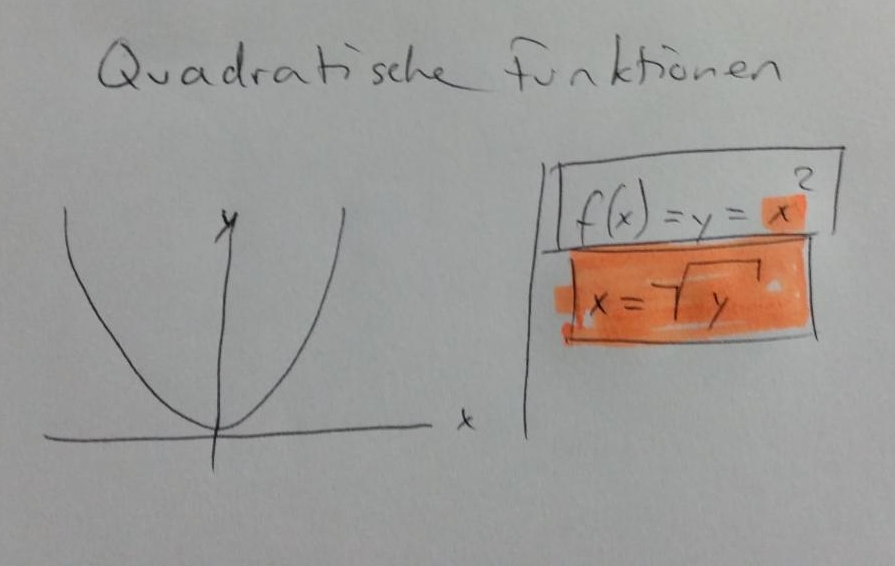 Quadratische Funktionen
y
x
f(x) = y = x²
x = √y